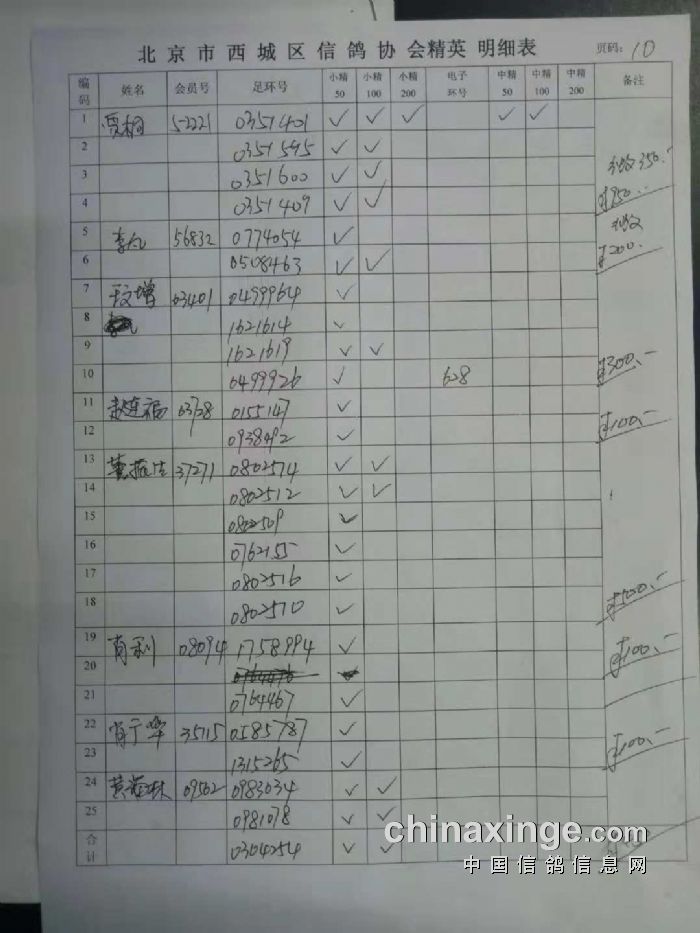 北京市西城区信鸽协会精英 明细表 页码: 10
编码 姓名 会员号 足环号 小精50 小精100 小精200 电子环号 中精50 中精100 中精200 备注
1 贾桐 52221 0351401 ✓ ✓ ✓ ✓ ✓
2 0351545 ✓ ✓
3 0351600 ✓ ✓ 350.-
4 0351409 ✓ ✓
5 56832 0774054 ✓
6 0508463 ✓ ✓ 200.
7 03401 0499964 ✓
8 1621614 ✓
9 1621619 ✓ ✓
10 0499926 ✓ 628 ¥300.-
11 赵连福 03728 0155147 ✓
12 0938492 ✓ ¥100.-
13 37271 0802574 ✓ ✓
14 0802512 ✓ ✓
15 0802509 ✓
16 0762155 ✓
17 0802516 ✓
18 0802570 ✓
19 肖利 08094 1758994 ✓ ¥100.-
20
21 0764467 ✓
22 肖宁华 35115 0585787 ✓ ¥100.-
23 1315265 ✓
24 黄海林 09502 0983034 ✓ ✓
25 0981078 ✓ ✓
合计 0304254 ✓ ✓
chinaxinge.com
中国信鸽信息网